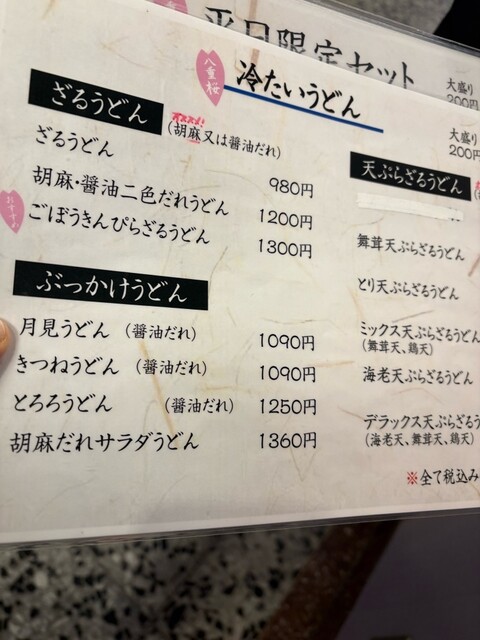 平日限定セット
大盛り
200円
八重桜
冷たいうどん
大盛り
200円
ざるうどん
(胡麻又は醤油だれ)
ざるうどん 980円
胡麻・醤油二色だれうどん 1200円
おすすめ
ごぼうきんぴらざるうどん 1300円
ぶっかけうどん
月見うどん (醤油だれ) 1090円
きつねうどん (醤油だれ) 1090円
とろろうどん (醤油だれ) 1250円
胡麻だれサラダうどん 1360円
天ぷらざるうどん
舞茸天ぷらざるうどん
とり天ぷらざるうどん
ミックス天ぷらざるうどん
(舞茸天、鶏天)
海老天ぷらざるうどん
デラックス天ぷらざるう
(海老天、舞茸天、鶏天)
※全て税込み